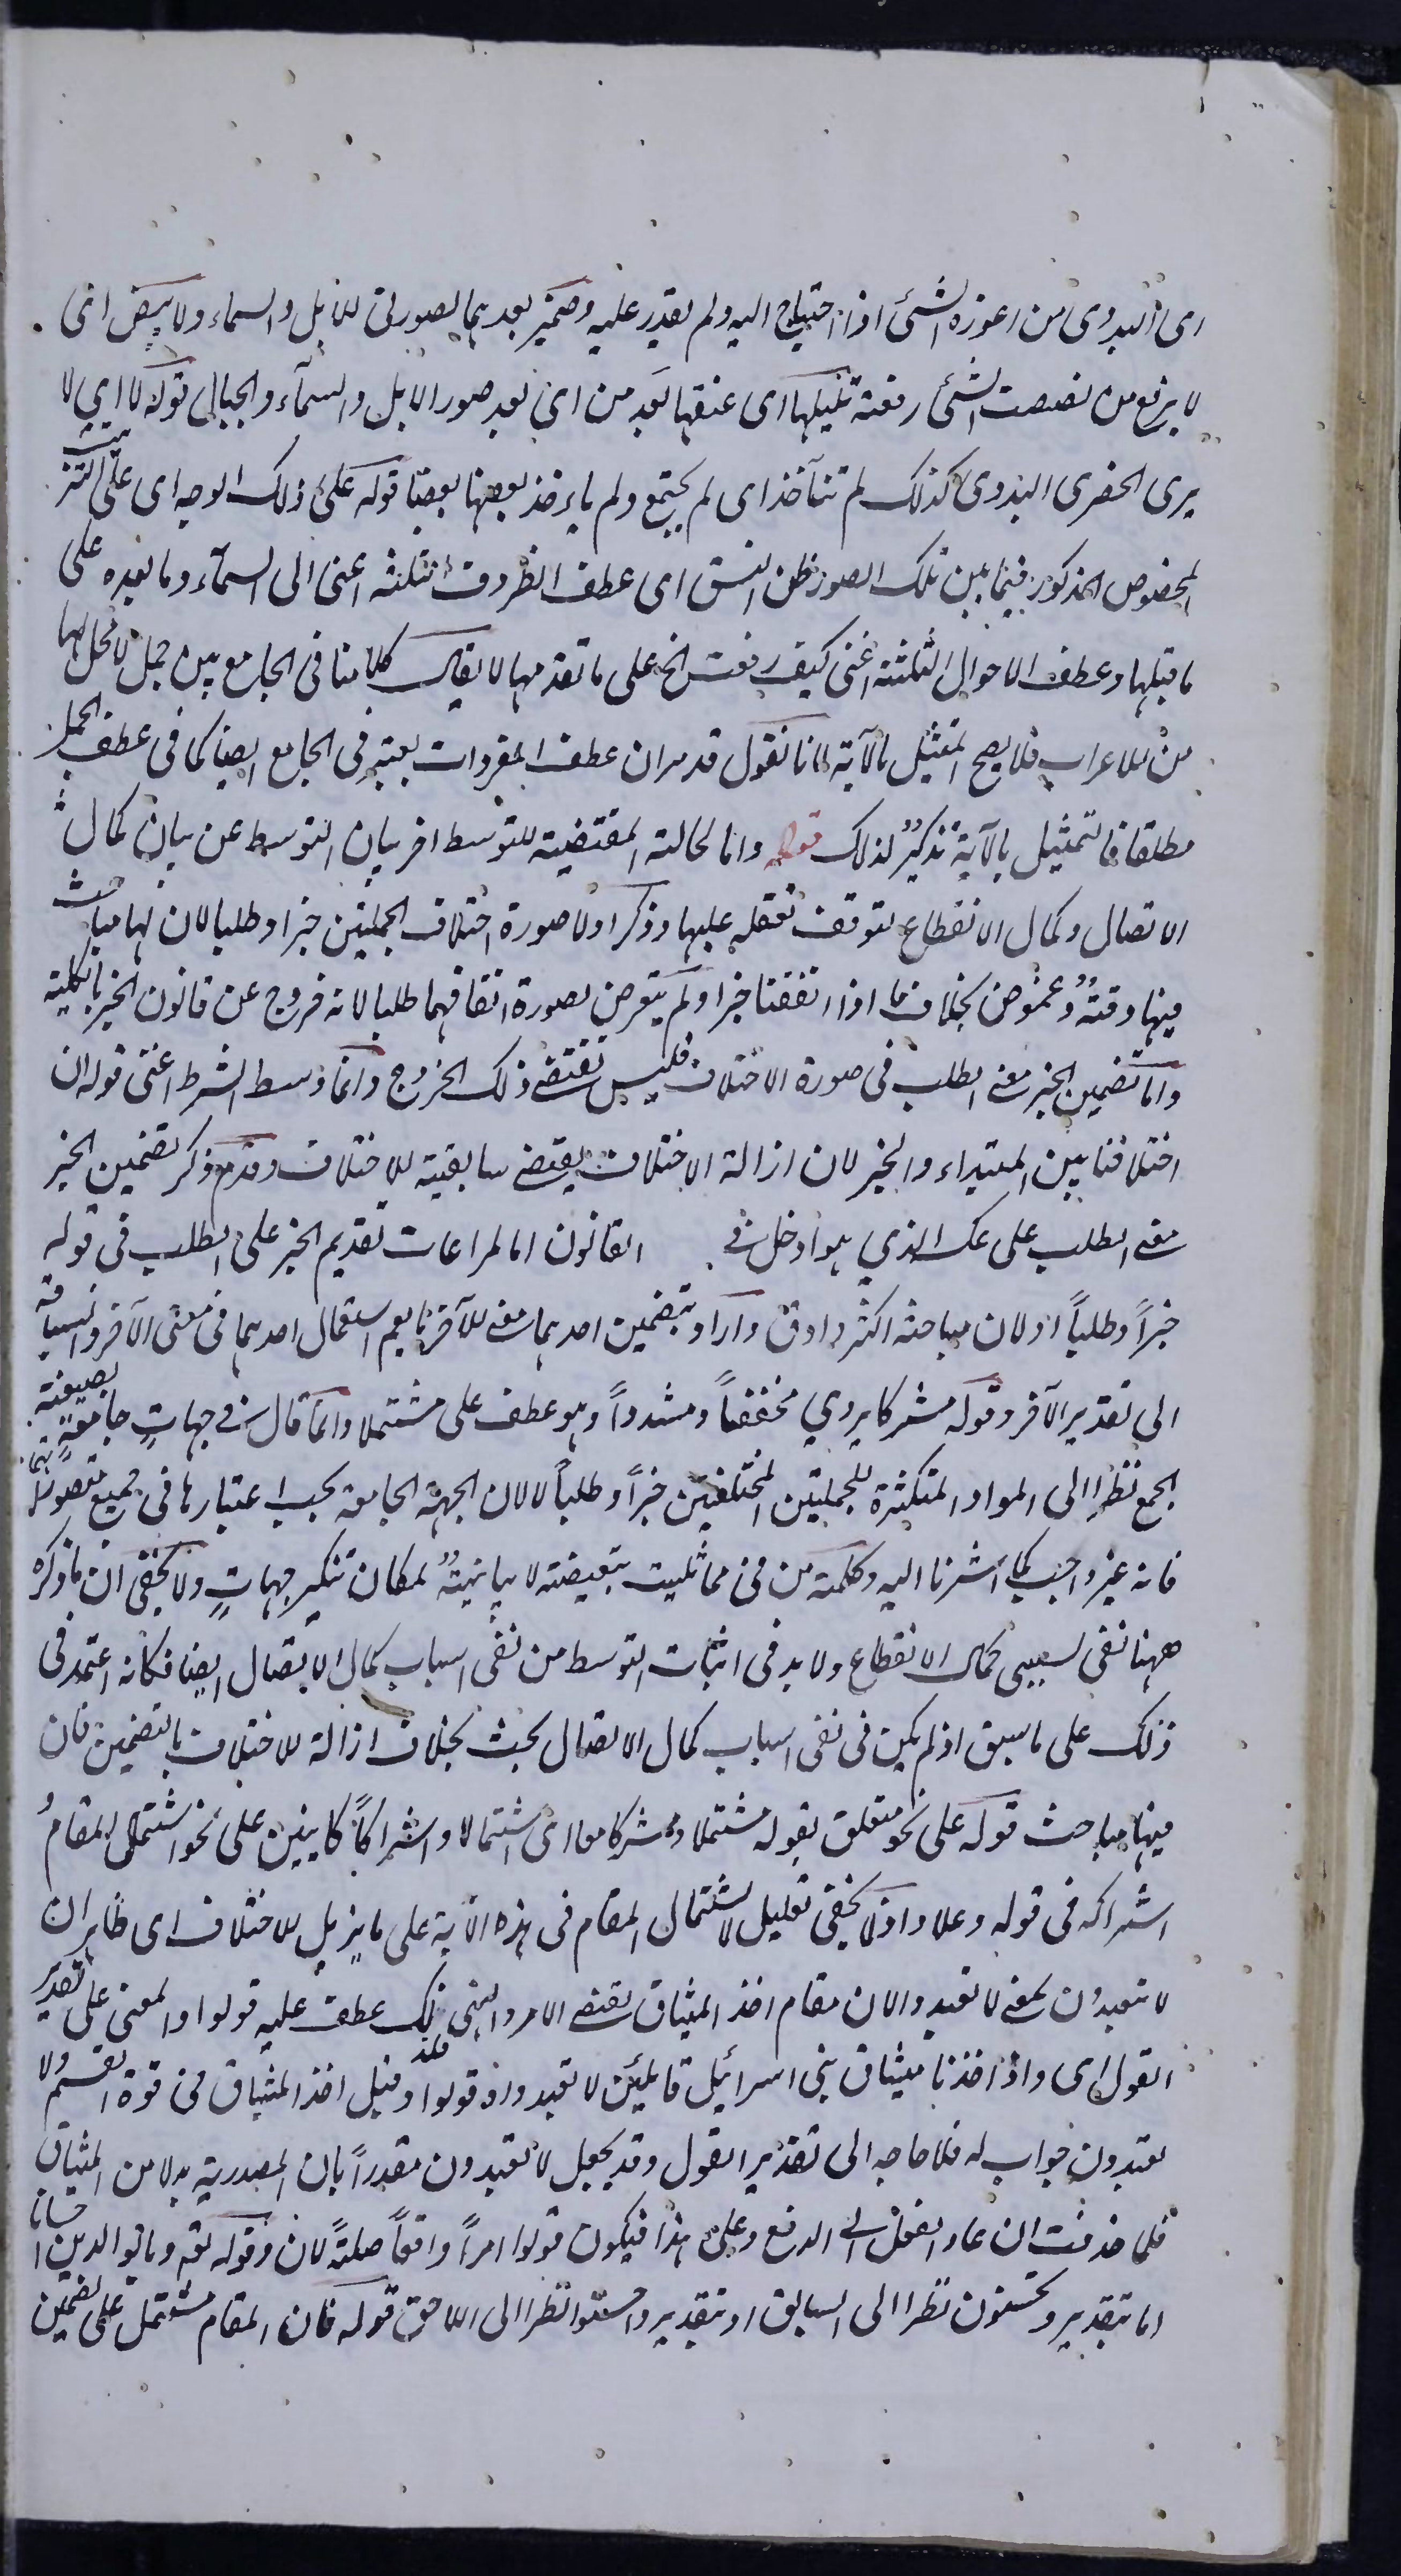 اى البدوى من اعوزه الشئ اذا احتياج اليه ولم يقدر عليه وضمير بعدهما لصورتى للابل والسماء ولا ينض اى
لا يرفع من نصصت الشئ رفعته تليلها اى عنقها بعد من اى بعد صور الابل والسمآء والجبال قوله لا اى لا
يرى الحضرى البدوى كذلك لم تتآخذ اى لم يجتمع ولم ياخذ بعضها بعضا قوله على ذلك الوجه اى على الترتيب
المخصوص المذكور فيما بين تلك الصور ظن النسق اى عطف الظروف الثلثه اعنى الى السمآء وما بعده على
ما قبلها وعطف الاحوال الثلثة اعنى كيف رفعت الخ على ما تقدمها لا يقال كلامنا فى الجامع بين جمل لا محل لها
من الاعراب فلا يصح التمثيل بالآية لانا نقول قد مر ان عطف المفردات يعتبر فى الجامع ايضا كما فى عطف الجمل
مطلقا فالتمثيل بالآية تذكير لذلك قوله واما الحالة المقتضية للتوسط اخر بيان التوسط عن بيان كمال
الاتصال وكمال الانقطاع لتوقف تعقله عليها وذكر اولا صورة اختلاف الجملتين خبرا وطلبا لان لها مباحث
فيها دقتة وغموض بخلاف ما اذا اتفقتا خبرا ولم يتعرض لصورة اتفاقهما طلبا لانه خروج عن قانون الخبر بالكلية
واما تضمين الخبر معنى الطلب فى صورة الاختلاف فليس تقتضى ذلك الخروج وانما وسط الشرط اعنى قوله ان
اختلافتا بين المبتداء والخبر لان ازالة الاختلاف يقتضى سابقية للاختلاف وقدم ذكر تضمين الخبر
معنى الطلب على عكس الذي هو ادخل فى القانون اما لمراعات تقديم الخبر على الطلب فى قوله
خبراً وطلباً او لان مباحثه اكثر وادق واراد بتضمين احدهما معنى للآخر ما يعم استعمال احدهما فى معنى الآخر وانسياقه
الى تقدير الآخر وقوله مشركا يروي مخففاً ومشدداً وهو عطف على مشتملا وانما قال فى جهاتٍ جامعةٍ بصيغة
الجمع نظرا الى المواد المتكثرة للجملتين المختلفتين خبراً وطلباً لا لان الجهة الجامعة يجب اعتبارها فى جميع متصوراتهما
فانه غير واجب كما اشرنا اليه وكلمة من فى مما تليت تبعيضة لا بيانيتة لمكان تنكير جهاتٍ ولا يخفى ان ما ذكره
ههنا نفى لسببى كمال الانقطاع ولا بد فى اثبات التوسط من نفى اسباب كمال الاتصال ايضا فكانه اعتمد فى
ذلك على ما سبق اذ لم يكن فى نفى اسباب كمال الاتصال بحث بخلاف ازالة للاختلاف بالتضمين فان
فيها مباحث قوله على نحو متعلق بقوله مشتملا ومشركا معا اى اشتمالا واشراكاً كاينين على نحو اشتمال المقام
اشراكه فى قوله وعلا واذ لا يخفى تعليل لاشتمال المقام فى هذه الآية على ما يزيل للاختلاف اى ظاهر ان
لا تعبدون بمعنى لا تعبدوا لان مقام اخذ الميثاق يقتضى الامر والنهى فلذلك عطف عليه قولوا والمعنى على تقدير
القول اى واذ اخذنا ميثاق بنى اسرائيل قائلين لا تعبدون وقولوا وقيل اخذ الميثاق فى قوة القسم ولا
تعبدون جواب له فلا حاجه الى تقدير القول وقد يجعل لا تعبدون مقدراً بان المصدرية بدلا من الميثاق
فلما حذفت ان عاد الفعل الى الرفع وعلى هذا فيكون قولوا امراً واقعاً صلتةً لان وقوله تع وبالوالدين احسانا
اما بتقدير وتحسنون نظرا الى السابق او بتقدير واحسنوا نظرا الى اللاحق قوله فان المقام مشتمل على تضمين